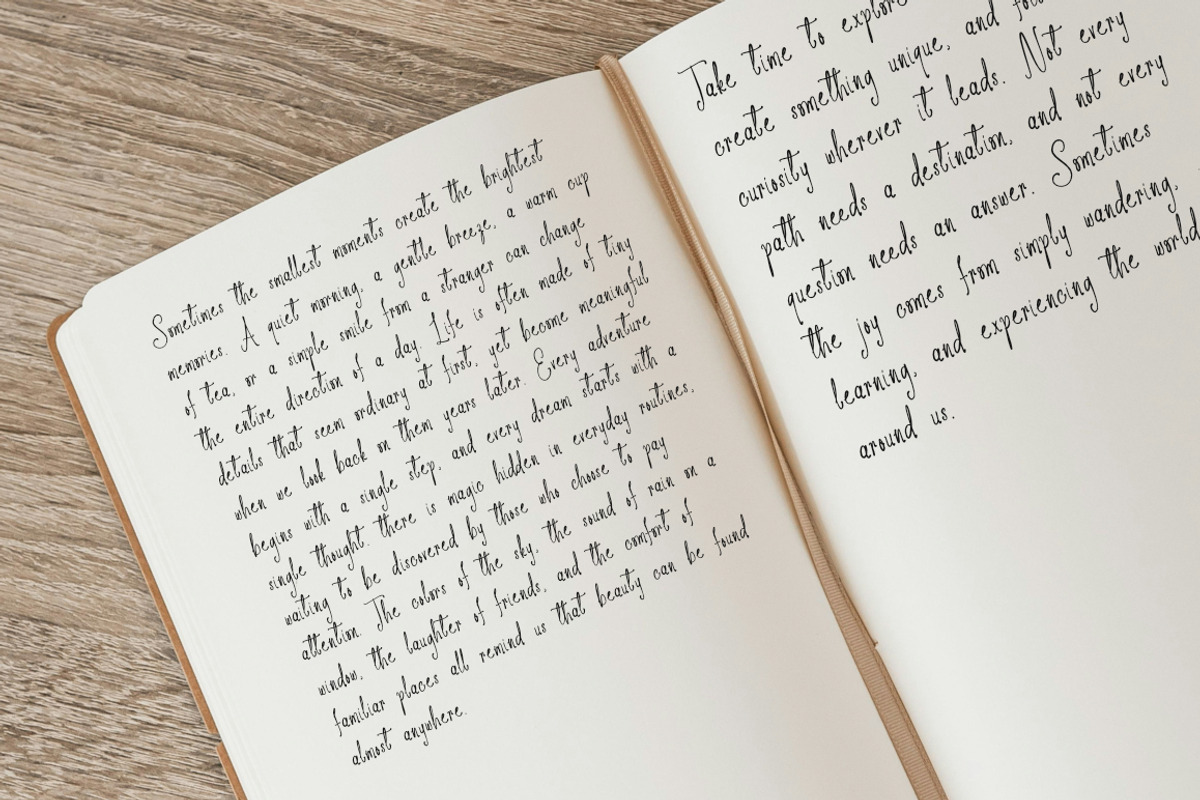 Sometimes the smallest moments create the brightest
memories. A quiet morning, a gentle breeze, a warm cup
of tea, or a simple smile from a stranger can change
the entire direction of a day. Life is often made of tiny
details that seem ordinary at first, yet become meaningful
when we look back on them years later. Every adventure
begins with a single step, and every dream starts with a
single thought. there is magic hidden in everyday routines,
waiting to be discovered by those who choose to pay
attention. The colors of the sky, the sound of rain on a
window, the laughter of friends, and the comfort of
familiar places all remind us that beauty can be found
almost anywhere.
Take time to explore
create something unique, and
curiosity wherever it leads. Not every
path needs a destination, and not every
question needs an answer. Sometimes
the joy comes from simply wandering,
learning, and experiencing the world
around us.